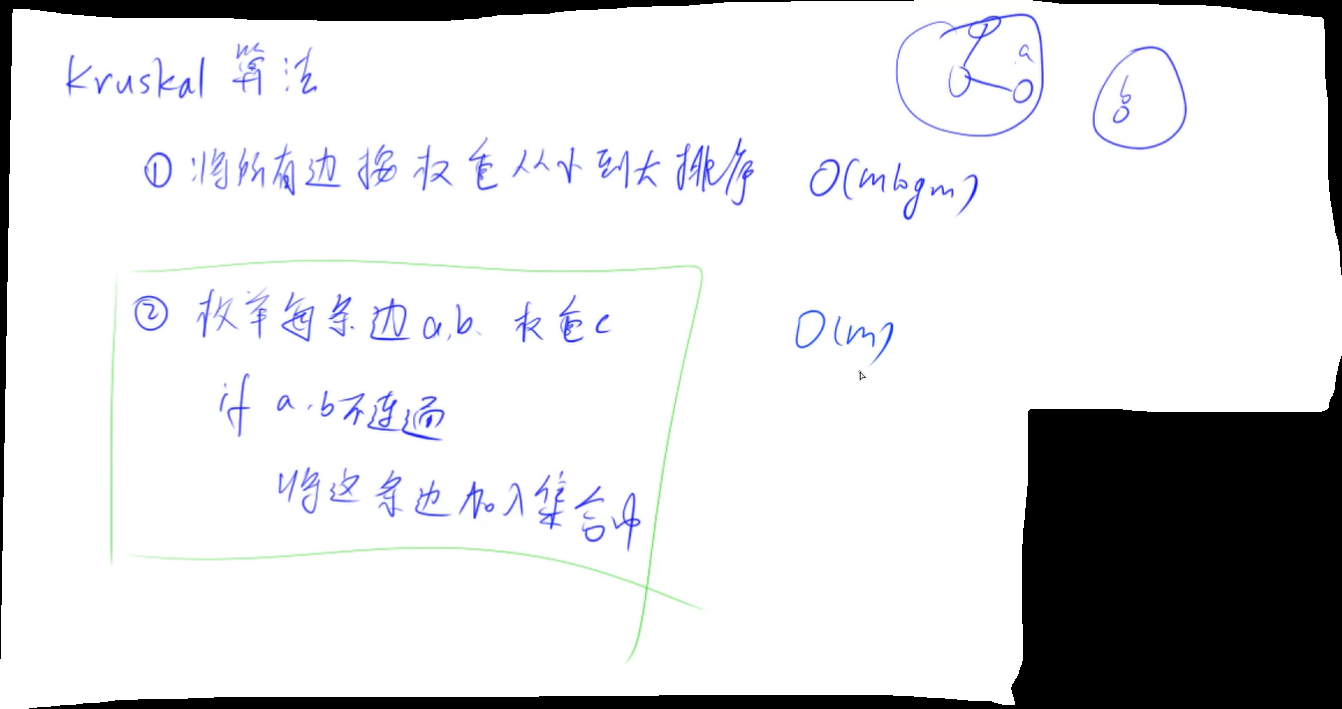 Kruskal 算法
a
b
① 将所有边按权重从小到大排序 O(mlogm)
② 枚举每条边a,b. 权重c O(m)
if a.b不连通
将这条边加入集合中